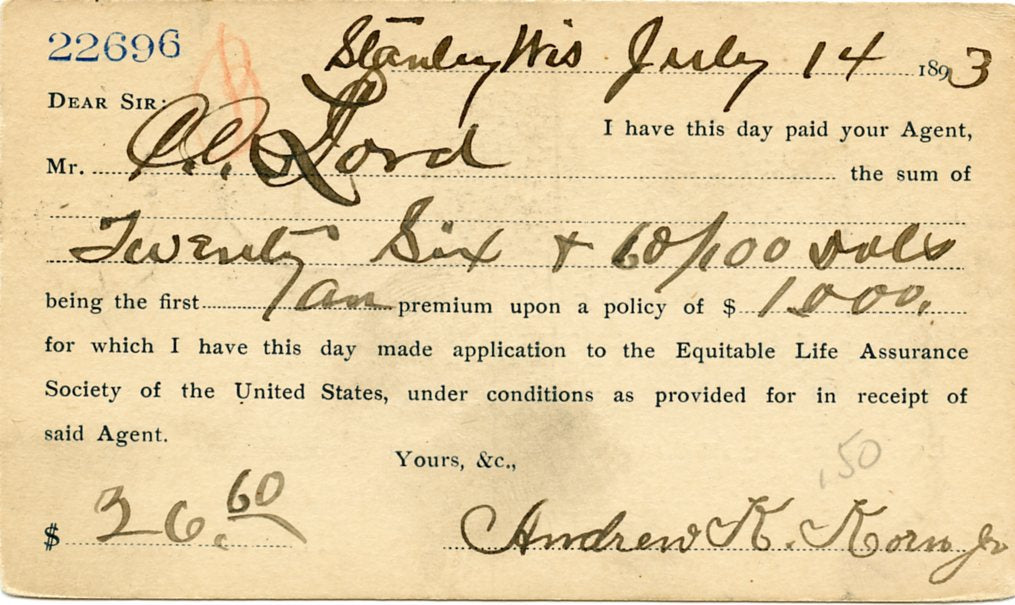 22696
Stanley Wis July 14 1893
DEAR SIR:
I have this day paid your Agent,
Mr. C.C. Lord the sum of
Twenty Six + 60/100 Dolls
being the first an premium upon a policy of $ 1000.
for which I have this day made application to the Equitable Life Assurance
Society of the United States, under conditions as provided for in receipt of
said Agent.
Yours, &c.,
.50
$ 26.60
Andrew K. Korn Jr